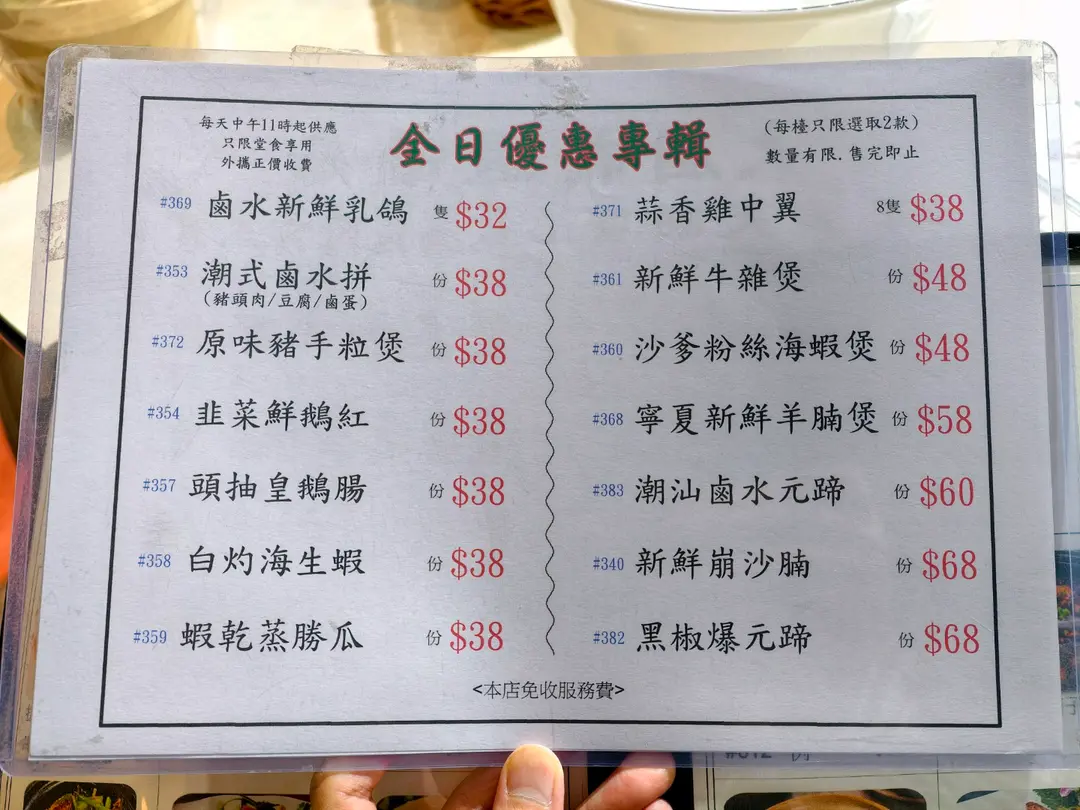 每天中午11時起供應
只限堂食專用
外攜正價收費
全日優惠專輯
(每檯只限選取2款)
數量有限. 售完即止
#369 鹵水新鮮乳鴿 隻 $32
#353 潮式鹵水拼 份 $38
(豬頭肉/豆腐/鹵蛋)
#372 原味豬手粒煲 份 $38
#354 韭菜鮮鵝紅 份 $38
#357 頭抽皇鵝腸 份 $38
#358 白灼海生蝦 份 $38
#359 蝦乾蒸勝瓜 份 $38
#371 蒜香雞中翼 8隻 $38
#361 新鮮牛雜煲 份 $48
#360 沙爹粉絲海蝦煲 份 $48
#368 寧夏新鮮羊腩煲 份 $58
#383 潮汕鹵水元蹄 份 $60
#340 新鮮崩沙腩 份 $68
#382 黑椒爆元蹄 份 $68
<本店免收服務費>